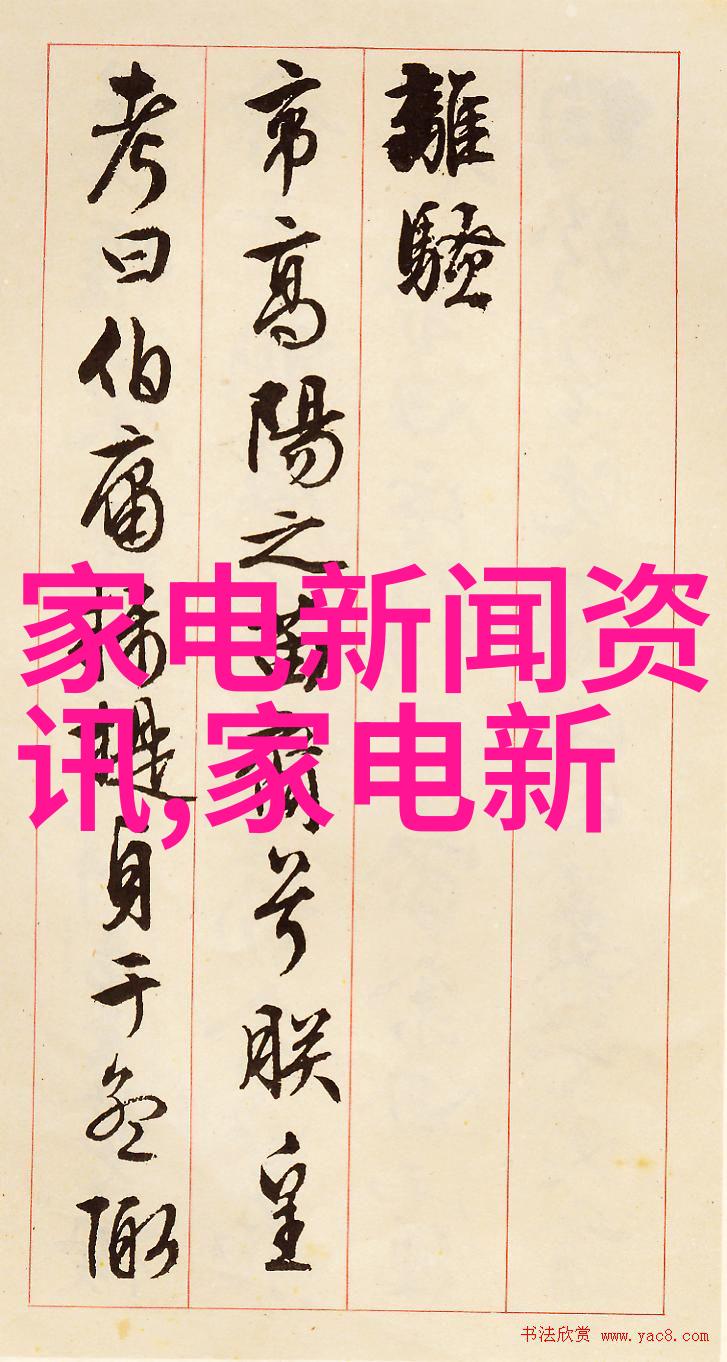 離騷
帝高陽之苗裔兮朕皇
考曰伯庸攝提貞于孟陬
家电新闻资
讯,家电新
书法欣赏 www.yac8.com